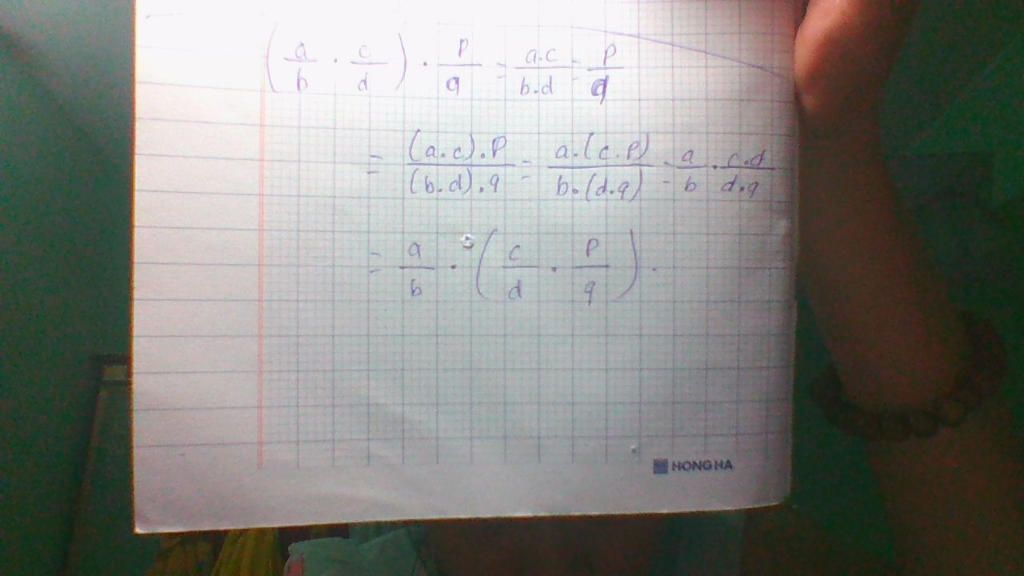 (a/b · c/d) · p/q = a.c/b.d = p/q
= (a.c).p/(b.d).q = a.(c.p)/b.(d.q) = a/b · c.d/d.q
= a/b · (c/d · p/q).
HONG HA